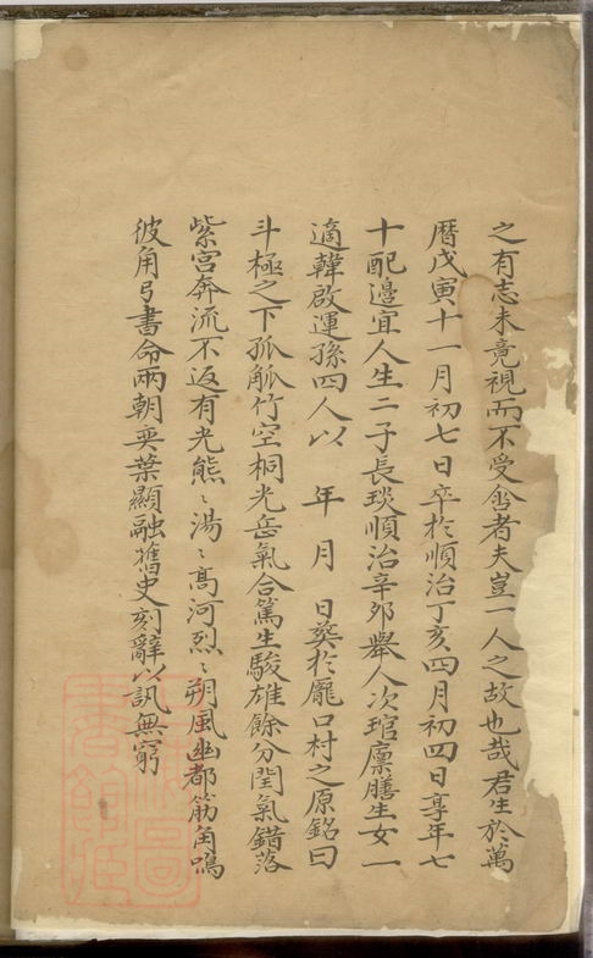 之有志未竟視而不受含者夫豈一人之故也哉君生於萬
曆戊寅十一月初七日卒於順治丁亥四月初四日享年七
十配邊宜人生二子長琰順治辛卯舉人次琯廩膳生女一
適韓啟運孫四人以 年 月 日葬於龐口村之原銘曰
斗極之下孤觚竹空桐光岳氣合篤生駿雄餘分閏氣錯落
紫宮奔流不返有光熊〻湯〻高河烈〻朔風幽都筋角鳴
彼角弓書命兩朝奕葉顯融舊史刻辭以訊無窮
圖
書館